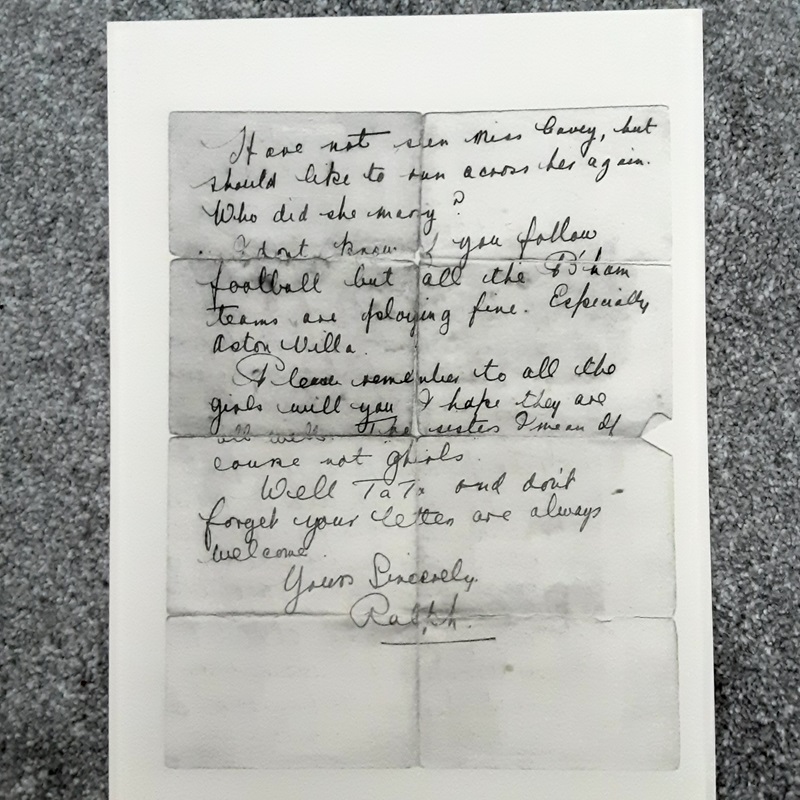 Have not seen Miss Cavey, but
should like to run across her again.
Who did she marry?
I dont know if you follow
football but all the B'ham
teams are playing fine. Especially
Aston Villa.
Please remember to all the
girls will you I hope they are
all well. The sisters I mean of
course not ghirls.
Well TaTa and don't
forget your letter are always
welcome.
Yours Sincerely
Ralph.